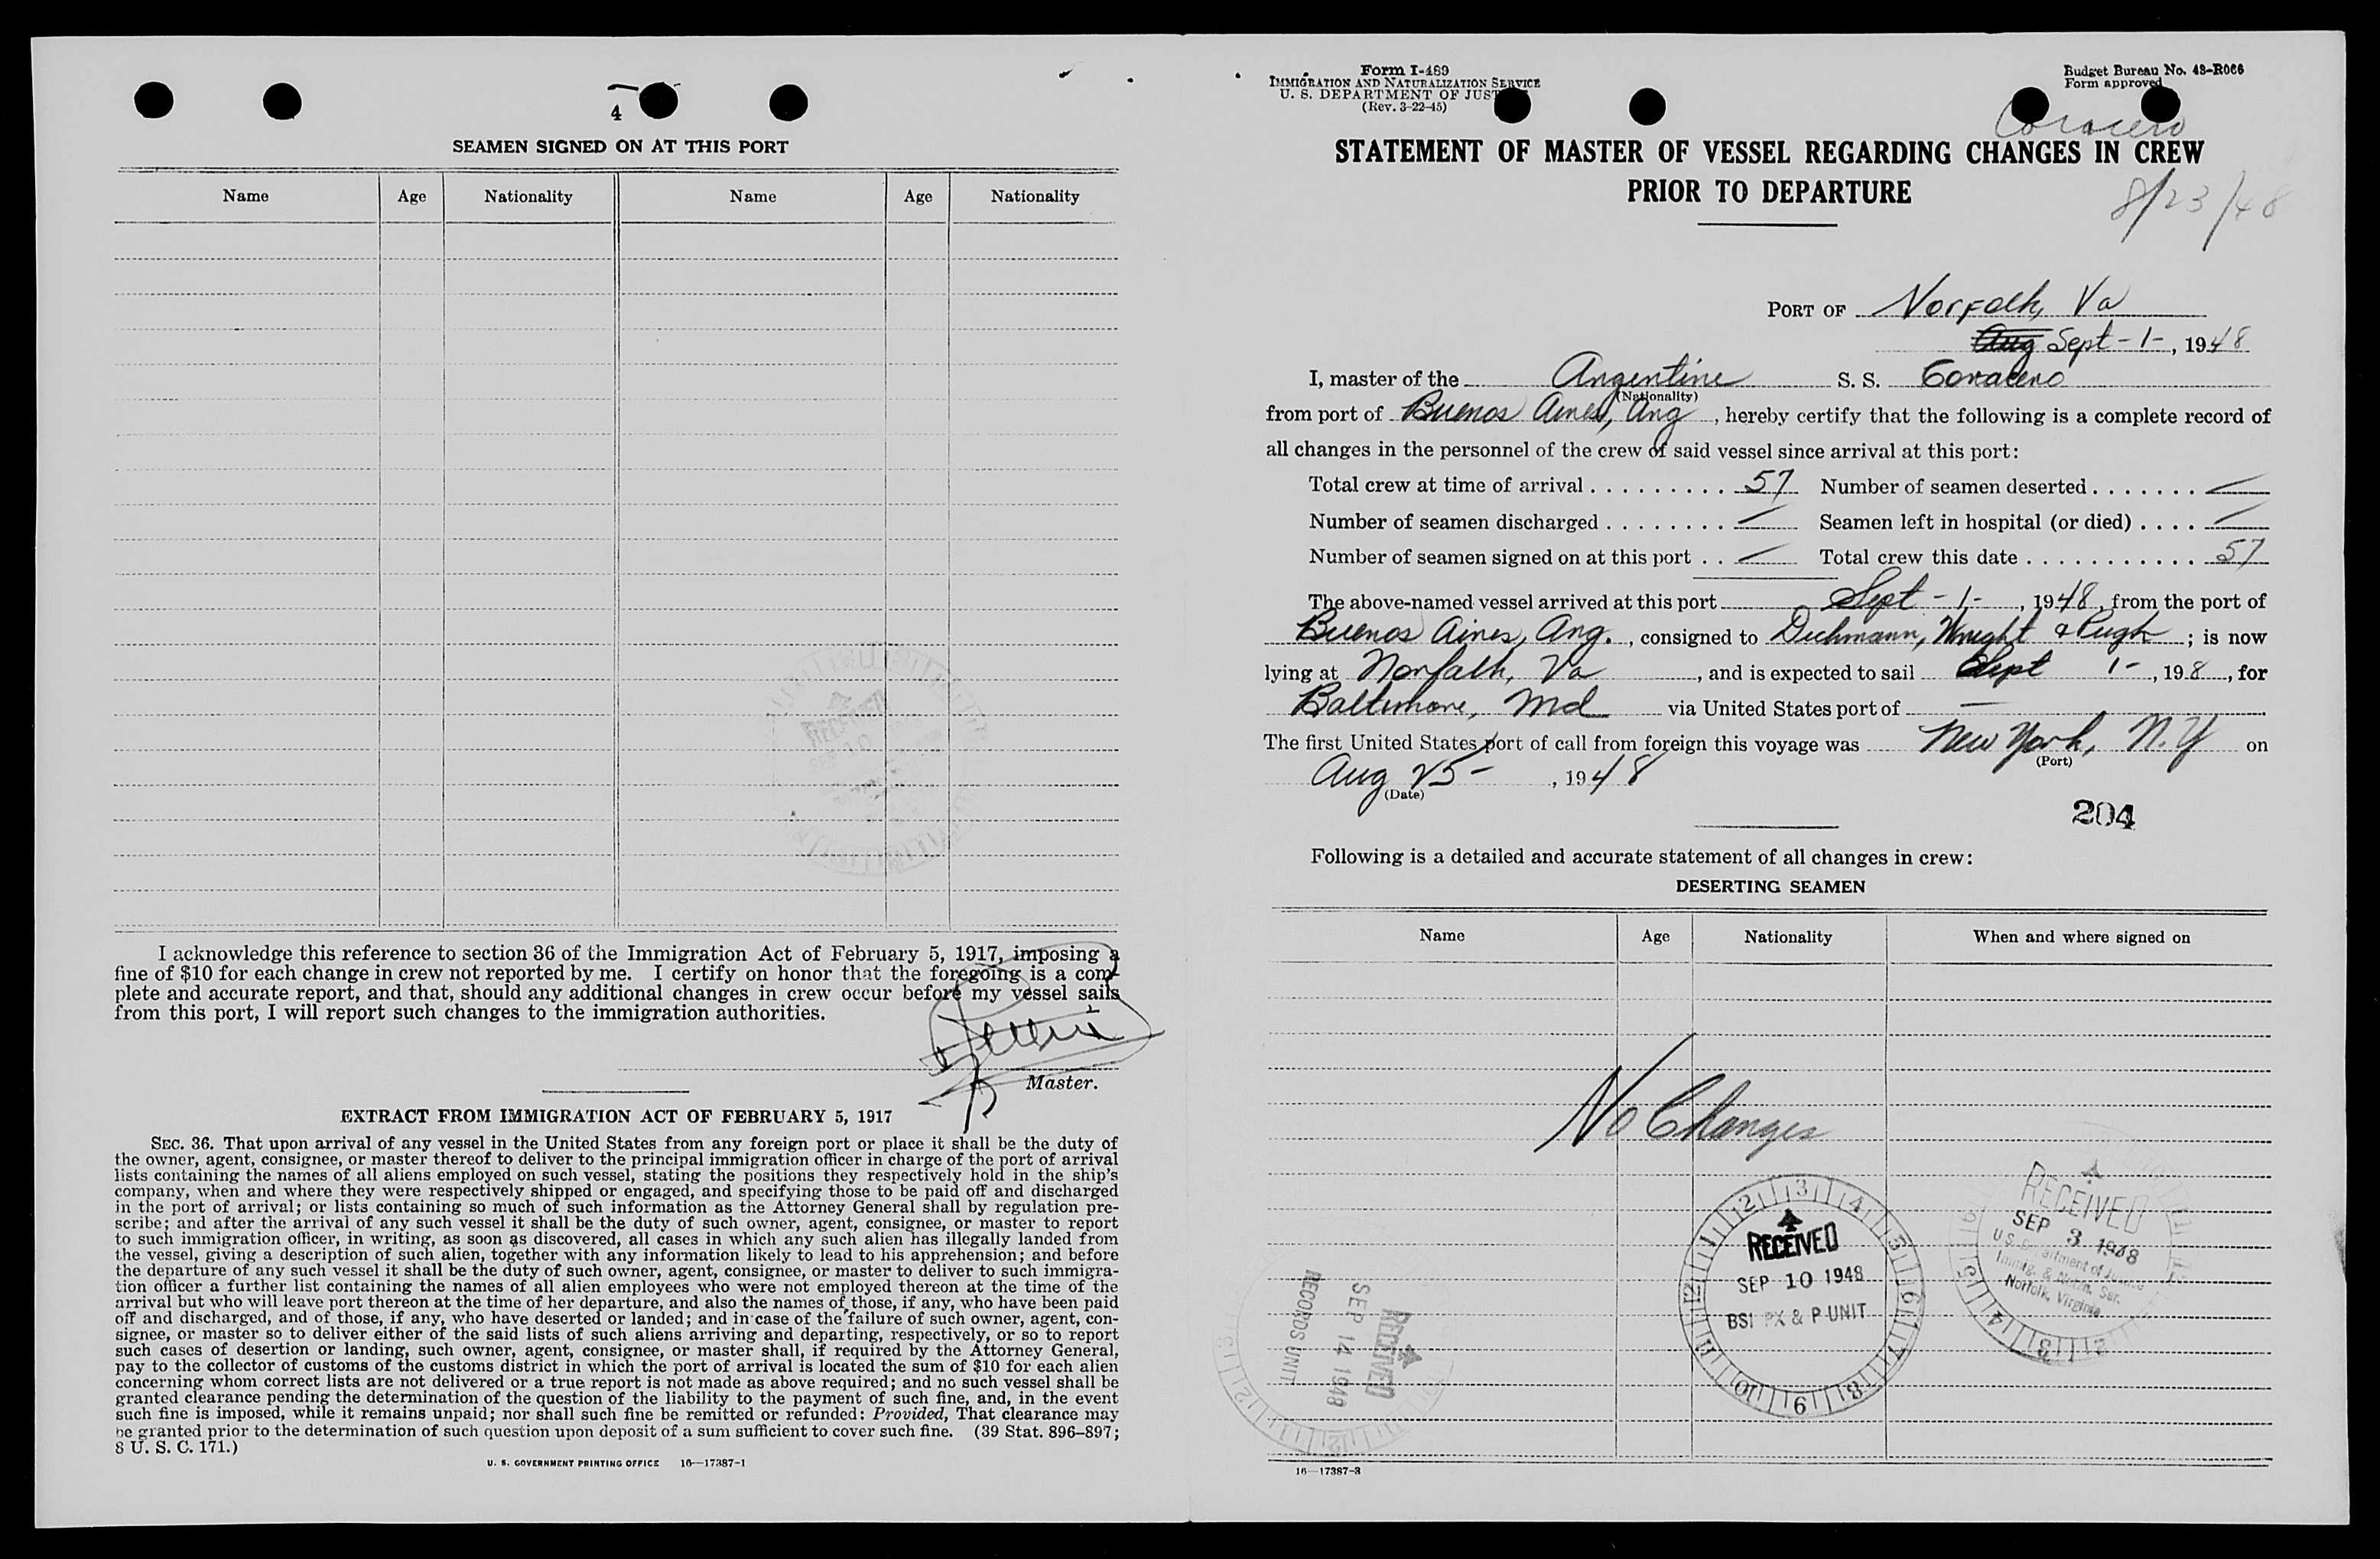 4
SEAMEN SIGNED ON AT THIS PORT
Name Age Nationality Name Age Nationality
I acknowledge this reference to section 36 of the Immigration Act of February 5, 1917, imposing a
fine of $10 for each change in crew not reported by me. I certify on honor that the foregoing is a com-
plete and accurate report, and that, should any additional changes in crew occur before my vessel sails
from this port, I will report such changes to the immigration authorities.
Master.
EXTRACT FROM IMMIGRATION ACT OF FEBRUARY 5, 1917
SEC. 36. That upon arrival of any vessel in the United States from any foreign port or place it shall be the duty of
the owner, agent, consignee, or master thereof to deliver to the principal immigration officer in charge of the port of arrival
lists containing the names of all aliens employed on such vessel, stating the positions they respectively hold in the ship's
company, when and where they were respectively shipped or engaged, and specifying those to be paid off and discharged
in the port of arrival; or lists containing so much of such information as the Attorney General shall by regulation pre-
scribe; and after the arrival of any such vessel it shall be the duty of such owner, agent, consignee, or master to report
to such immigration officer, in writing, as soon as discovered, all cases in which any such alien has illegally landed from
the vessel, giving a description of such alien, together with any information likely to lead to his apprehension; and before
the departure of any such vessel it shall be the duty of such owner, agent, consignee, or master to deliver to such immigra-
tion officer a further list containing the names of all alien employees who were not employed thereon at the time of the
arrival but who will leave port thereon at the time of her departure, and also the names of those, if any, who have been paid
off and discharged, and of those, if any, who have deserted or landed; and in case of the failure of such owner, agent, con-
signee, or master so to deliver either of the said lists of such aliens arriving and departing, respectively, or so to report
such cases of desertion or landing, such owner, agent, consignee, or master shall, if required by the Attorney General,
pay to the collector of customs of the customs district in which the port of arrival is located the sum of $10 for each alien
concerning whom correct lists are not delivered or a true report is not made as above required; and no such vessel shall be
granted clearance pending the determination of the question of the liability to the payment of such fine, and, in the event
such fine is imposed, while it remains unpaid; nor shall such fine be remitted or refunded: Provided, That clearance may
be granted prior to the determination of such question upon deposit of a sum sufficient to cover such fine. (39 Stat. 896-897;
8 U. S. C. 171.)
U. S. GOVERNMENT PRINTING OFFICE 16—17387-1
Form I-489
IMMIGRATION AND NATURALIZATION SERVICE
U. S. DEPARTMENT OF JUST
(Rev. 3-22-45)
Budget Bureau No. 43-R066
Form approved
Coracero
STATEMENT OF MASTER OF VESSEL REGARDING CHANGES IN CREW
PRIOR TO DEPARTURE
8/23/48
PORT OF Norfolk, Va
Aug Sept-1-, 1948
I, master of the Argentine S. S. Coracero
(Nationality)
from port of Buenos Aires, Arg, hereby certify that the following is a complete record of
all changes in the personnel of the crew of said vessel since arrival at this port:
Total crew at time of arrival . . . . . . . . . 57 Number of seamen deserted . . . . . . . —
Number of seamen discharged . . . . . . . . — Seamen left in hospital (or died) . . . . —
Number of seamen signed on at this port . . — Total crew this date . . . . . . . . . . . 57
The above-named vessel arrived at this port Sept-1-, 1948, from the port of
Buenos Aires, Arg., consigned to Dichmann, Wright & Pugh; is now
lying at Norfolk, Va, and is expected to sail Sept 1-, 198, for
Baltimore, Md via United States port of —
The first United States port of call from foreign this voyage was New York, N.Y on
(Port)
Aug 25-, 1948
(Date)
204
Following is a detailed and accurate statement of all changes in crew:
DESERTING SEAMEN
Name Age Nationality When and where signed on
No Changes
RECEIVED
SEP 10 1948
BSI PX & P UNIT
RECEIVED
SEP 3 1948
U.S. Department of Justice
Immig. & Natzn. Ser.
Norfolk, Virginia
RECEIVED
SEP 14 1948
RECORDS UNIT
16—17387-3